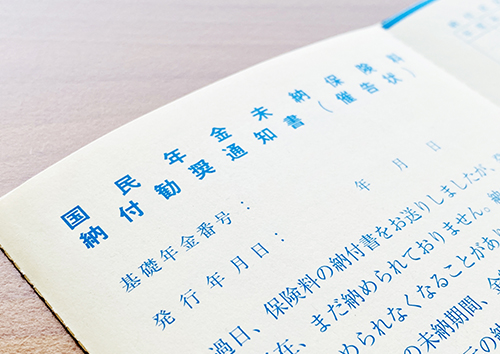 国民年金未納保険料
納付勧奨通知書（催告状）
基礎年金番号：
発行年月日：　　年　月　日
過日、保険料の納付書をお送りしましたが、
在、まだ納められておりません。
められなくなることがあり
の未納期間、金